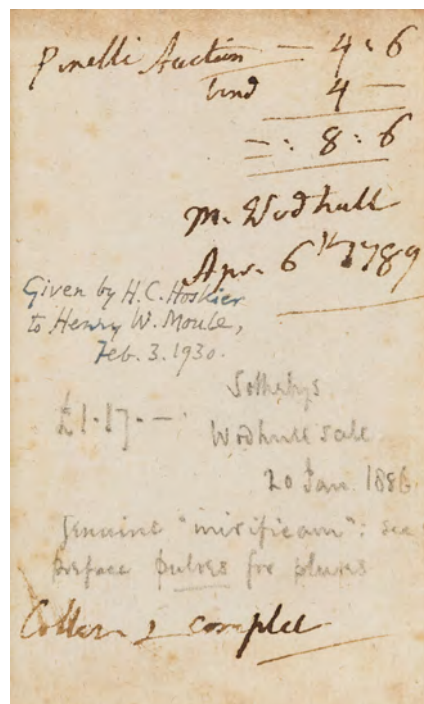 Pinelli Auction — 4 : 6
bind 4 —
— : 8 : 6
M. Wodhull
Apr. 6th 1789
Given by H.C. Hoskier
to Henry W. Moule,
Feb. 3. 1930.
Sothebys
£1.17.—.
Wodhull sale
20 Jan. 1886
Genuine "mirificam": see
preface pulres for plures
Collan & complet